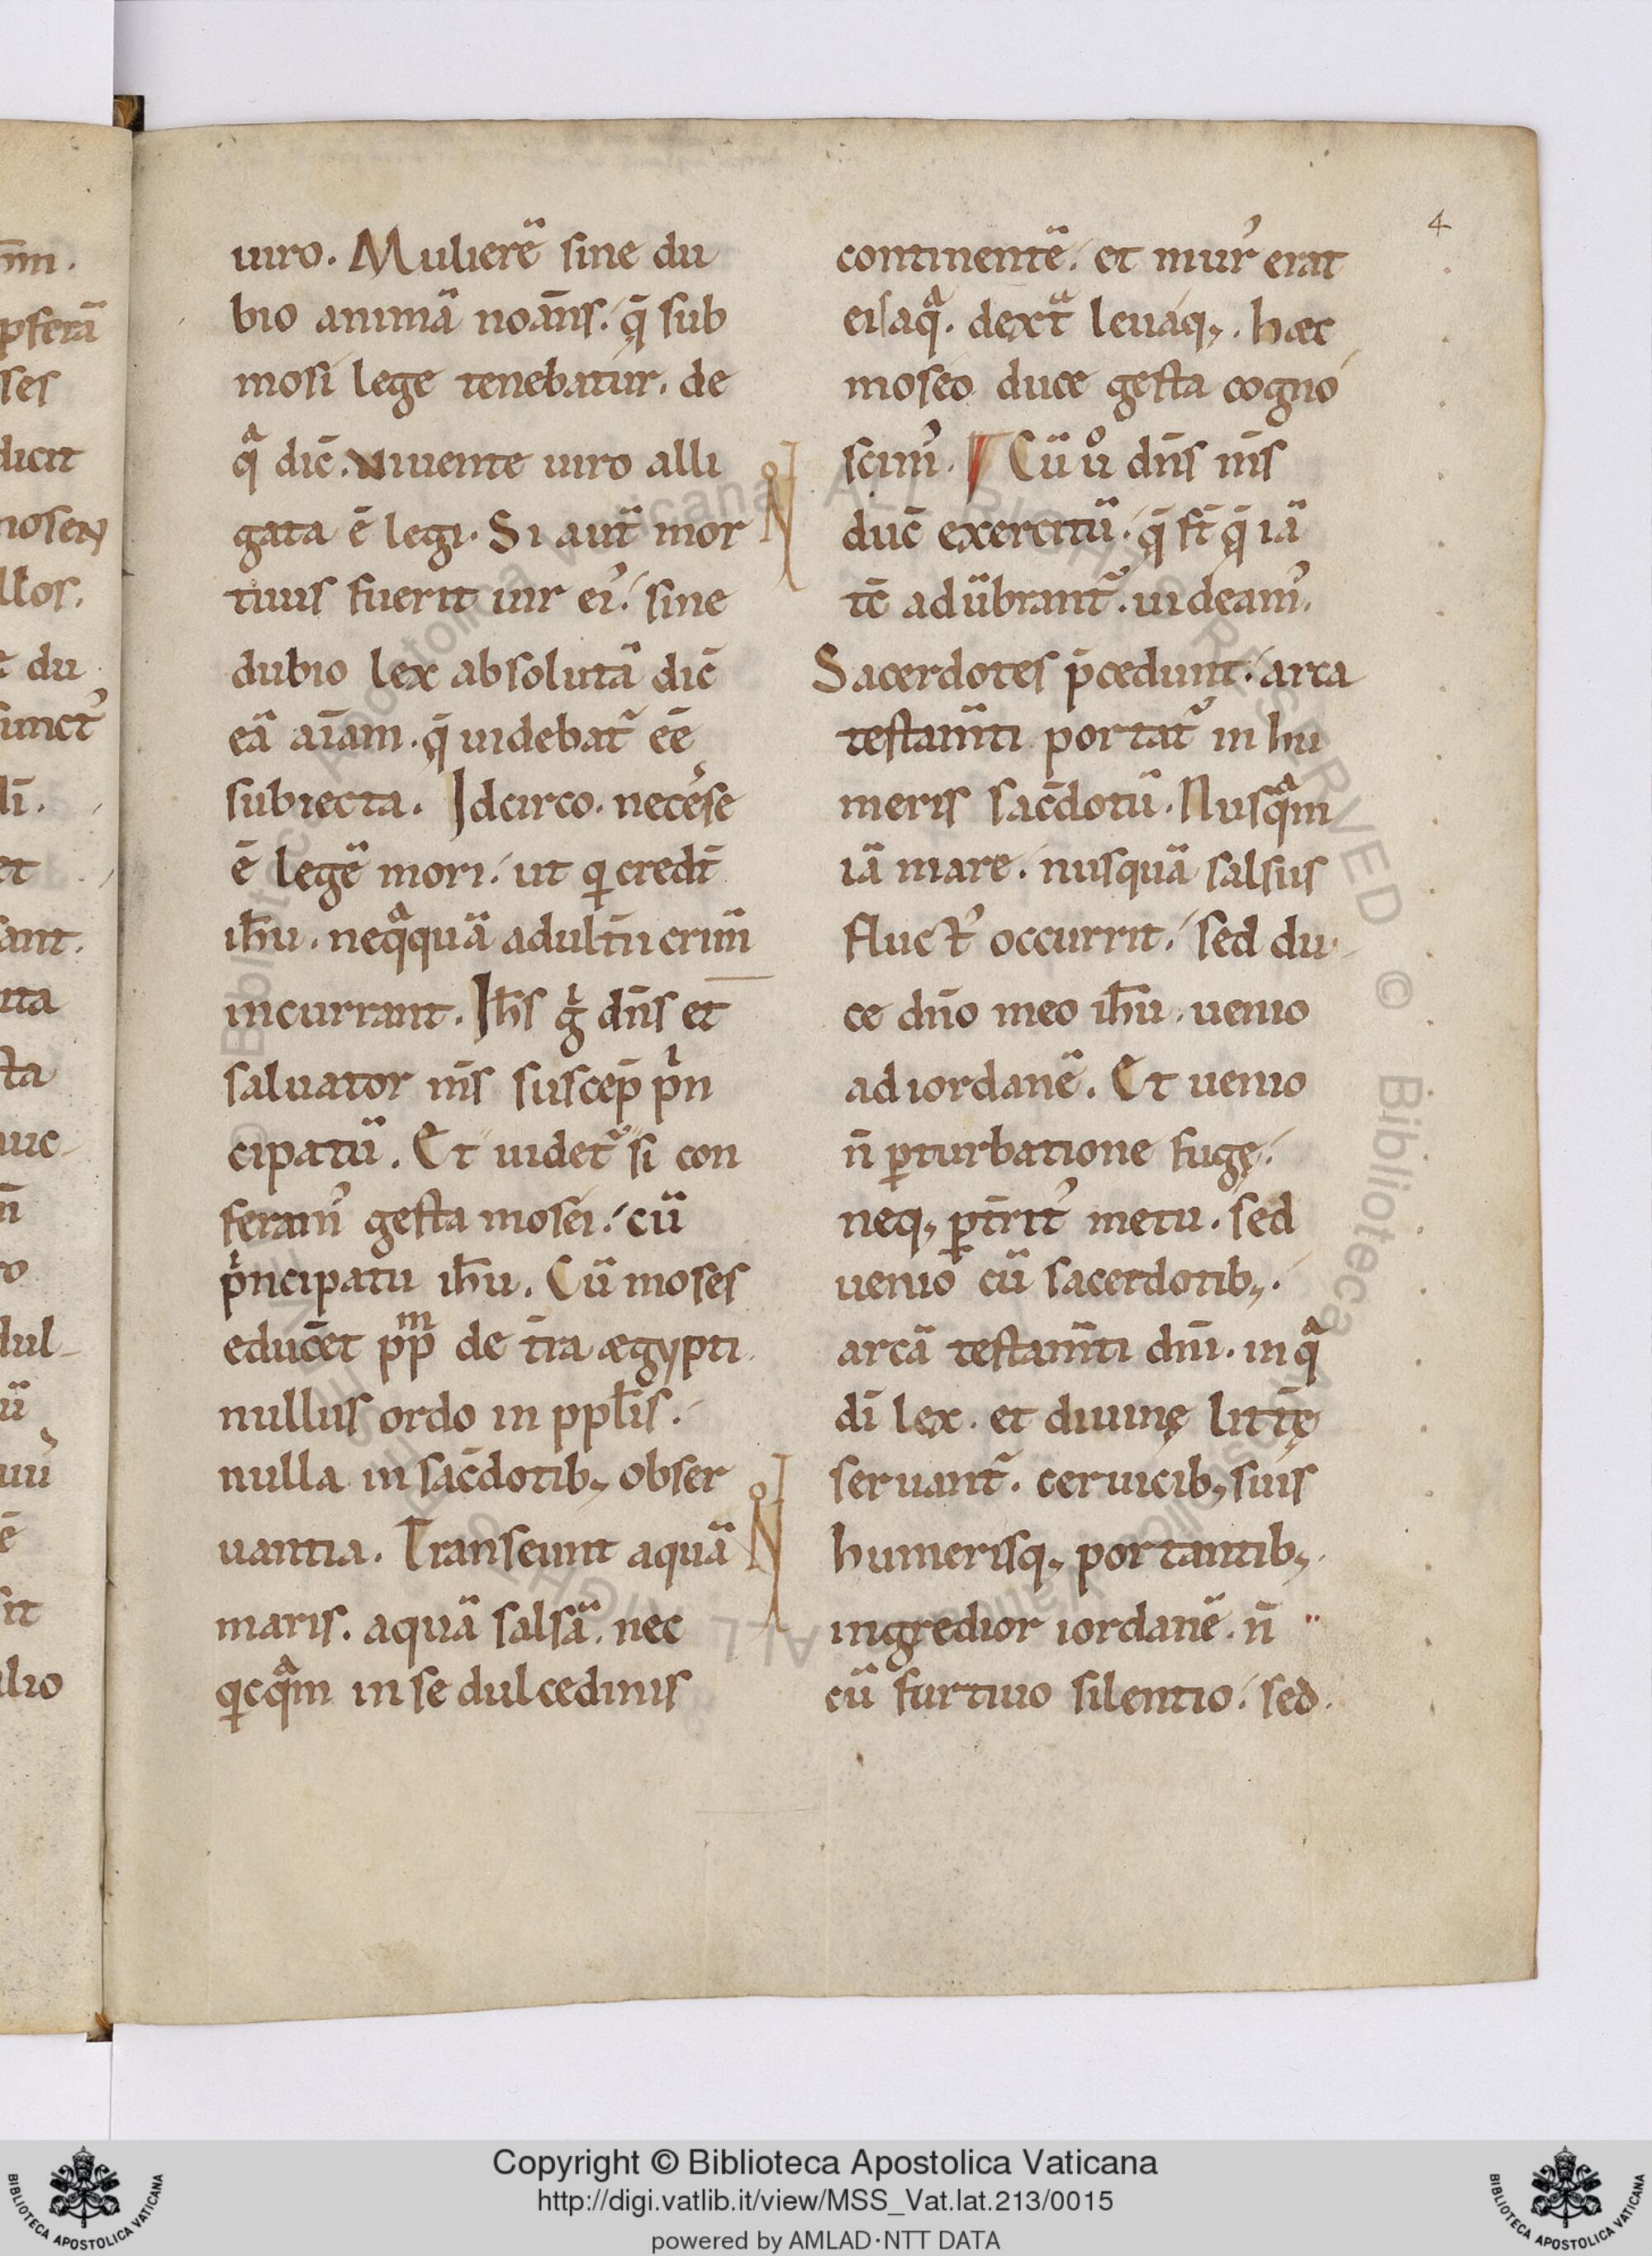 4
uiro. Mulierē sine du
bio animā noāns. q̄ sub
mosi lege tenebatur. de
qͣ dic̄. viuente uiro alli
gata ē legi. Si aut̄ mor
tuus fuerit uir ei᾽. sine
dubio lex absolutā dic̄
eā aīam. q̄ uidebat᷑ eē
subiecta. Idcirco. necesse
ē legē mori. ut qi credt̄
ih̄u. neqͣquā adult̄ii crim̄
incurrant. Ih̄s gͥ dn̄s et
saluator nr̄s suscep̄ pͥn
cipatū. Et uidet᷑ si con
feram᾽ gesta mosei. cū
pͥncipatu ih̄u. Cū moses
educēt pp̄m de t̄ra ægypti
nullus ordo in ppl̄is.
nulla in sac̄dotib; obser
uantia. Transeunt aquā
maris. aquā salsā. nec
qcqͣm in se dulcedinis
continentē. et mur᾽ erat
eis aqͣ. dext̄ͣ leuaq;. hæc
moseo duce gesta cogno
scim᾽. Cū uͦ dn̄s nr̄s
duc̄ exercitū. q̄ st̄ q̄ iā
tc̄ adūbrant᷑. uideam᾽.
Sacerdotes p̄cedunt. arca
testam̄ti portat᷑ in hu
meris sac̄dotū. Nusqͣm
iā mare. nusquā salsus
fluct᾽ occurrit. sed du
ce dn̄o meo ih̄u. uenio
ad iordanē. Et uenio
n̄ ꝑturbatione fugę.
neq; ꝑt̄rit᾽ metu. sed
uenio cū sacerdotib;.
arcā testam̄ti dn̄i. in qͣ
dī lex. et diuinę litt̄ę
seruant᷑. ceruicib; suis
humerisq; portantib;.
ingredior iordanē. n̄
cū furtiuo silentio. sed
Copyright © Biblioteca Apostolica Vaticana
http://digi.vatlib.it/view/MSS_Vat.lat.213/0015
powered by AMLAD·NTT DATA